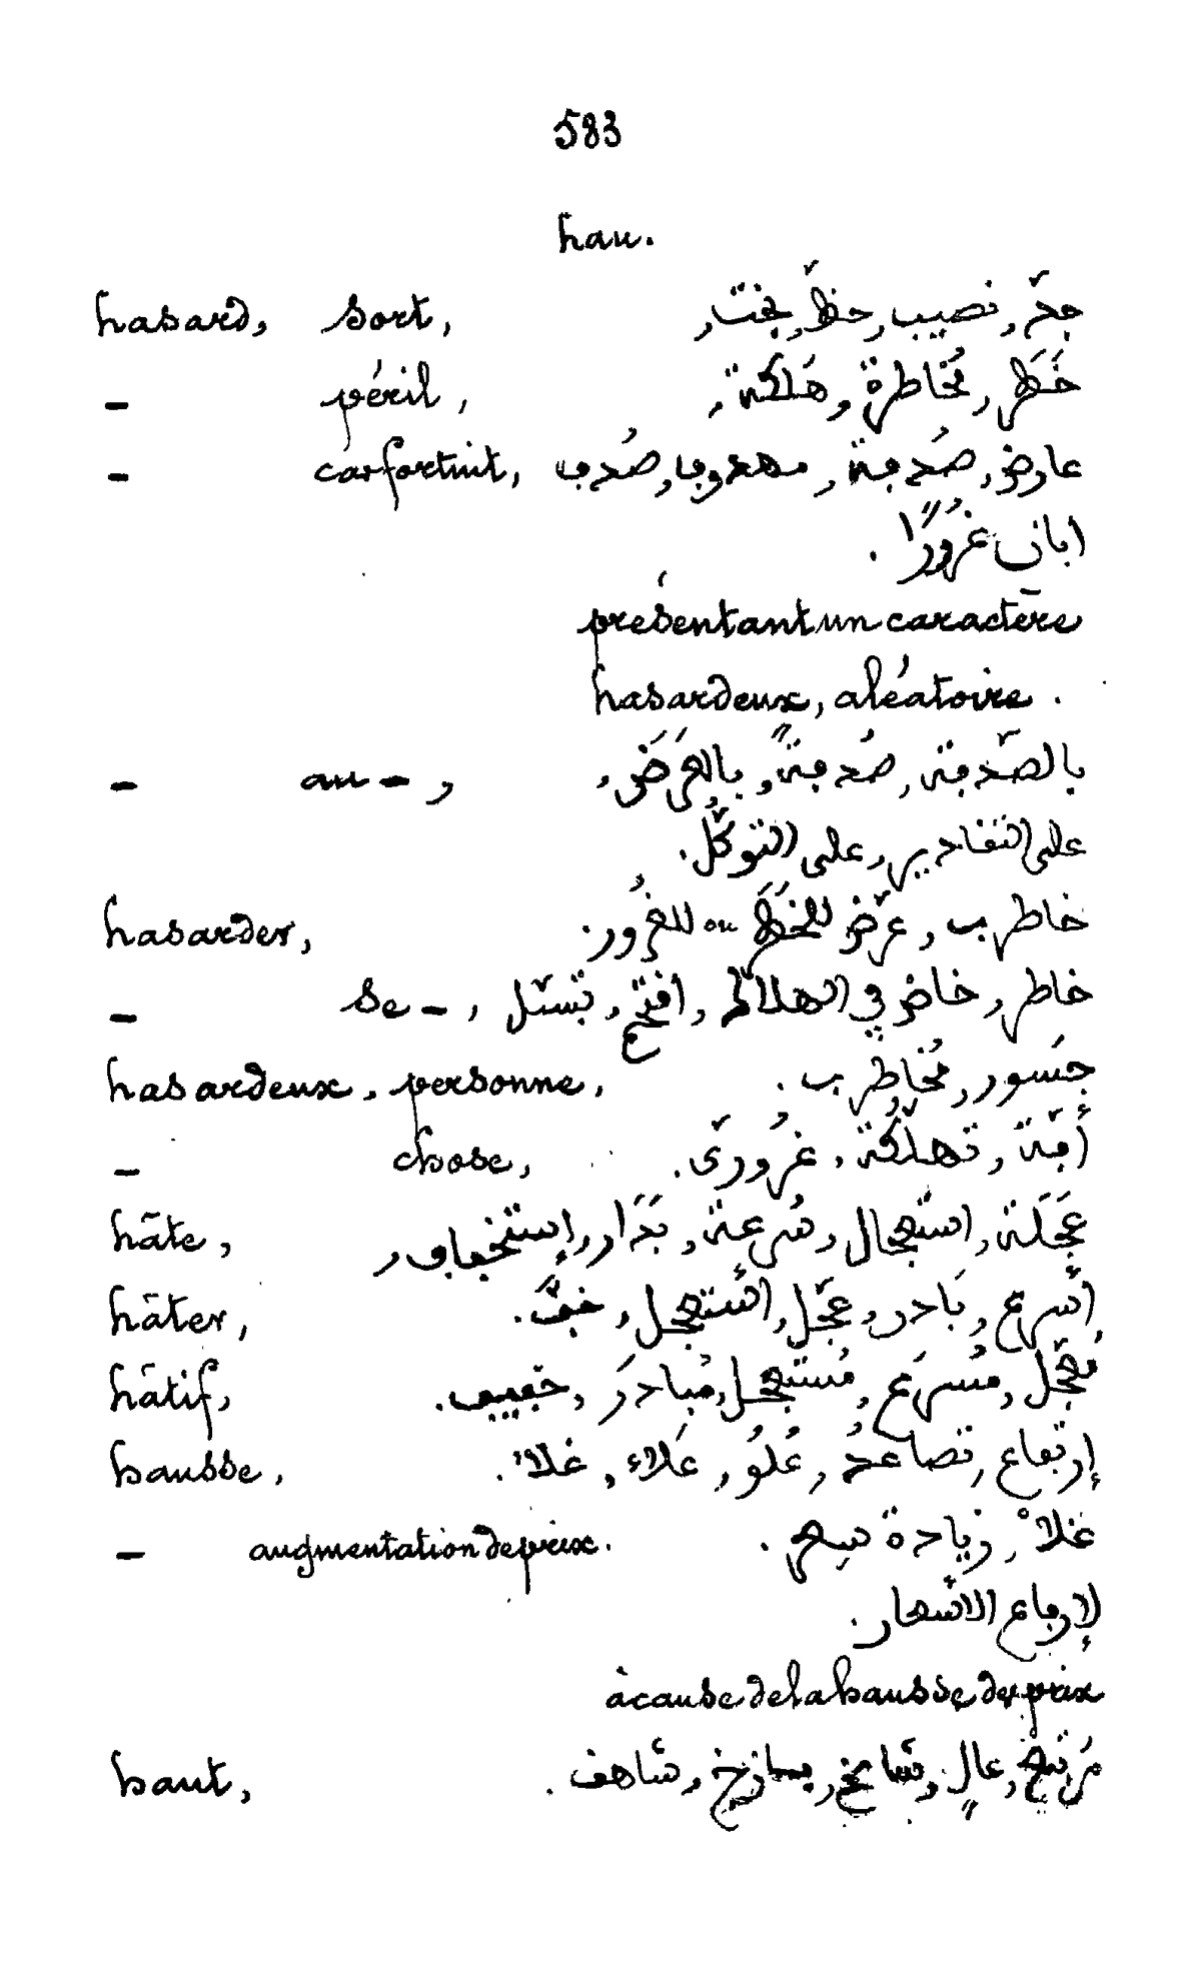 583
hau.
hasard, sort, جدّ, نصيب, حظّ, بخت,
— péril, خَطَر, مُخاطرة, هَلَكة,
— cas fortuit, عارض, صُدفة, صُدف
ابان غُرُورًا.
présentant un caractère
hasardeux, aléatoire.
— au —, بالصّدفة, صُدفةً, بالعَرَض,
على التقادير, على التوكّل.
hasarder, خاطر ب, عرّض للخَطَر ou للغُرور.
— se —, خاطر, خاض في
hasardeux, personne, جَسور, مُخاطِر ب.
— chose, تهلُكة, غُرورىّ.
hâte, عَجَلة, استعجال, سُرعة, بَدَار,
hâter, أسرع, بَادر, عجّل, استعجل, خفّ.
hâtif, مُعجّل, مُسرِع, مُستعجل, مُبادر, خفيف.
hausse, إرتفاع, تصاعدُ, عُلوُ, عَلاء, غلاء.
— augmentation de prix. غلاءْ, زيادة سعر.
لإرفاع الاسعار.
à cause de la hausse des prix
haut, مُرتفع, عالٍ, شامخ, شاهق.